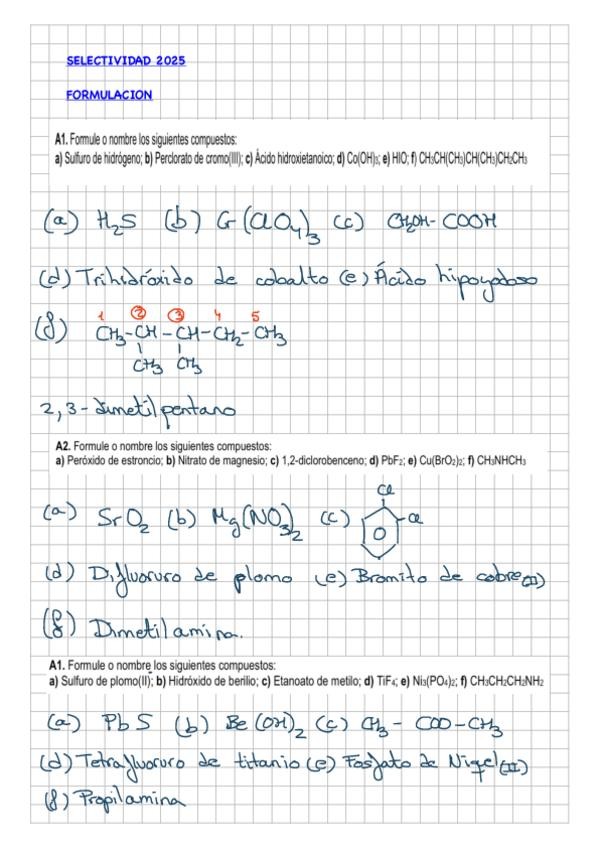 SELECTIVIDAD 2025
FORMULACION
A1. Formule o nombre los siguientes compuestos:
a) Sulfuro de hidrógeno; b) Perclorato de cromo(III); c) Ácido hidroxietanoico; d) Co(OH)₃; e) HIO; f) CH₃CH(CH₃)CH(CH₃)CH₂CH₃
(a) H₂S (b) Cr(ClO₄)₃ (c) CH₂OH-COOH
(d) Trihidróxido de cobalto (e) Ácido hipoyodoso
1 2 3 4 5
(f) CH₃-CH-CH-CH₂-CH₃
CH₃ CH₃
2,3-dimetilpentano
A2. Formule o nombre los siguientes compuestos:
a) Peróxido de estroncio; b) Nitrato de magnesio; c) 1,2-diclorobenceno; d) PbF₂; e) Cu(BrO₂)₂; f) CH₃NHCH₃
Cl
(a) SrO₂ (b) Mg(NO₃)₂ (c) -Cl
(d) Difluoruro de plomo (e) Bromito de cobre(II)
(f) Dimetilamina.
A1. Formule o nombre los siguientes compuestos:
a) Sulfuro de plomo(II); b) Hidróxido de berilio; c) Etanoato de metilo; d) TiF₄; e) Ni₃(PO₄)₂; f) CH₃CH₂CH₂NH₂
(a) PbS (b) Be(OH)₂ (c) CH₃-COO-CH₃
(d) Tetrafluoruro de titanio (e) Fosfato de Niquel(II)
(f) Propilamina